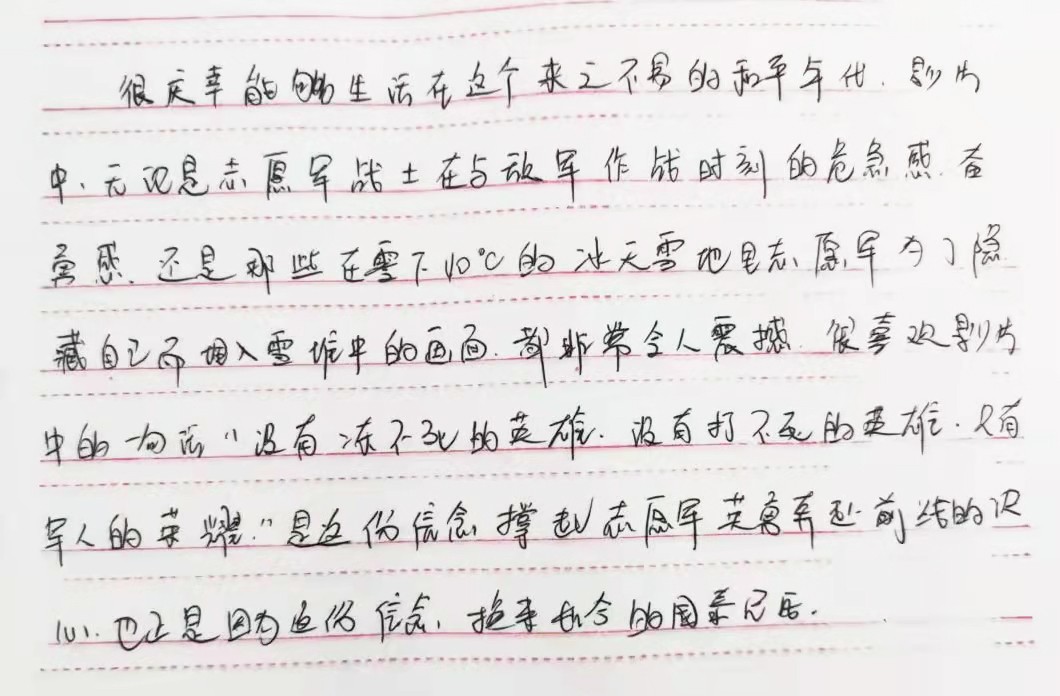 很庆幸能够生活在这个来之不易的和平年代.影片
中、无论是志愿军战士在与敌军作战时刻的危急感.奋
勇感.还是那些在零下40℃的冰天雪地里志愿军为了隐
藏自己而埋入雪堆中的画面.都非常令人震撼.很喜欢影片
中的一句话"没有冻不死的英雄.没有打不死的英雄.只有
军人的荣耀."是这份信念撑起志愿军英勇奔赴前线的决
心.也正是因为这份信念、换来如今的国泰民安.